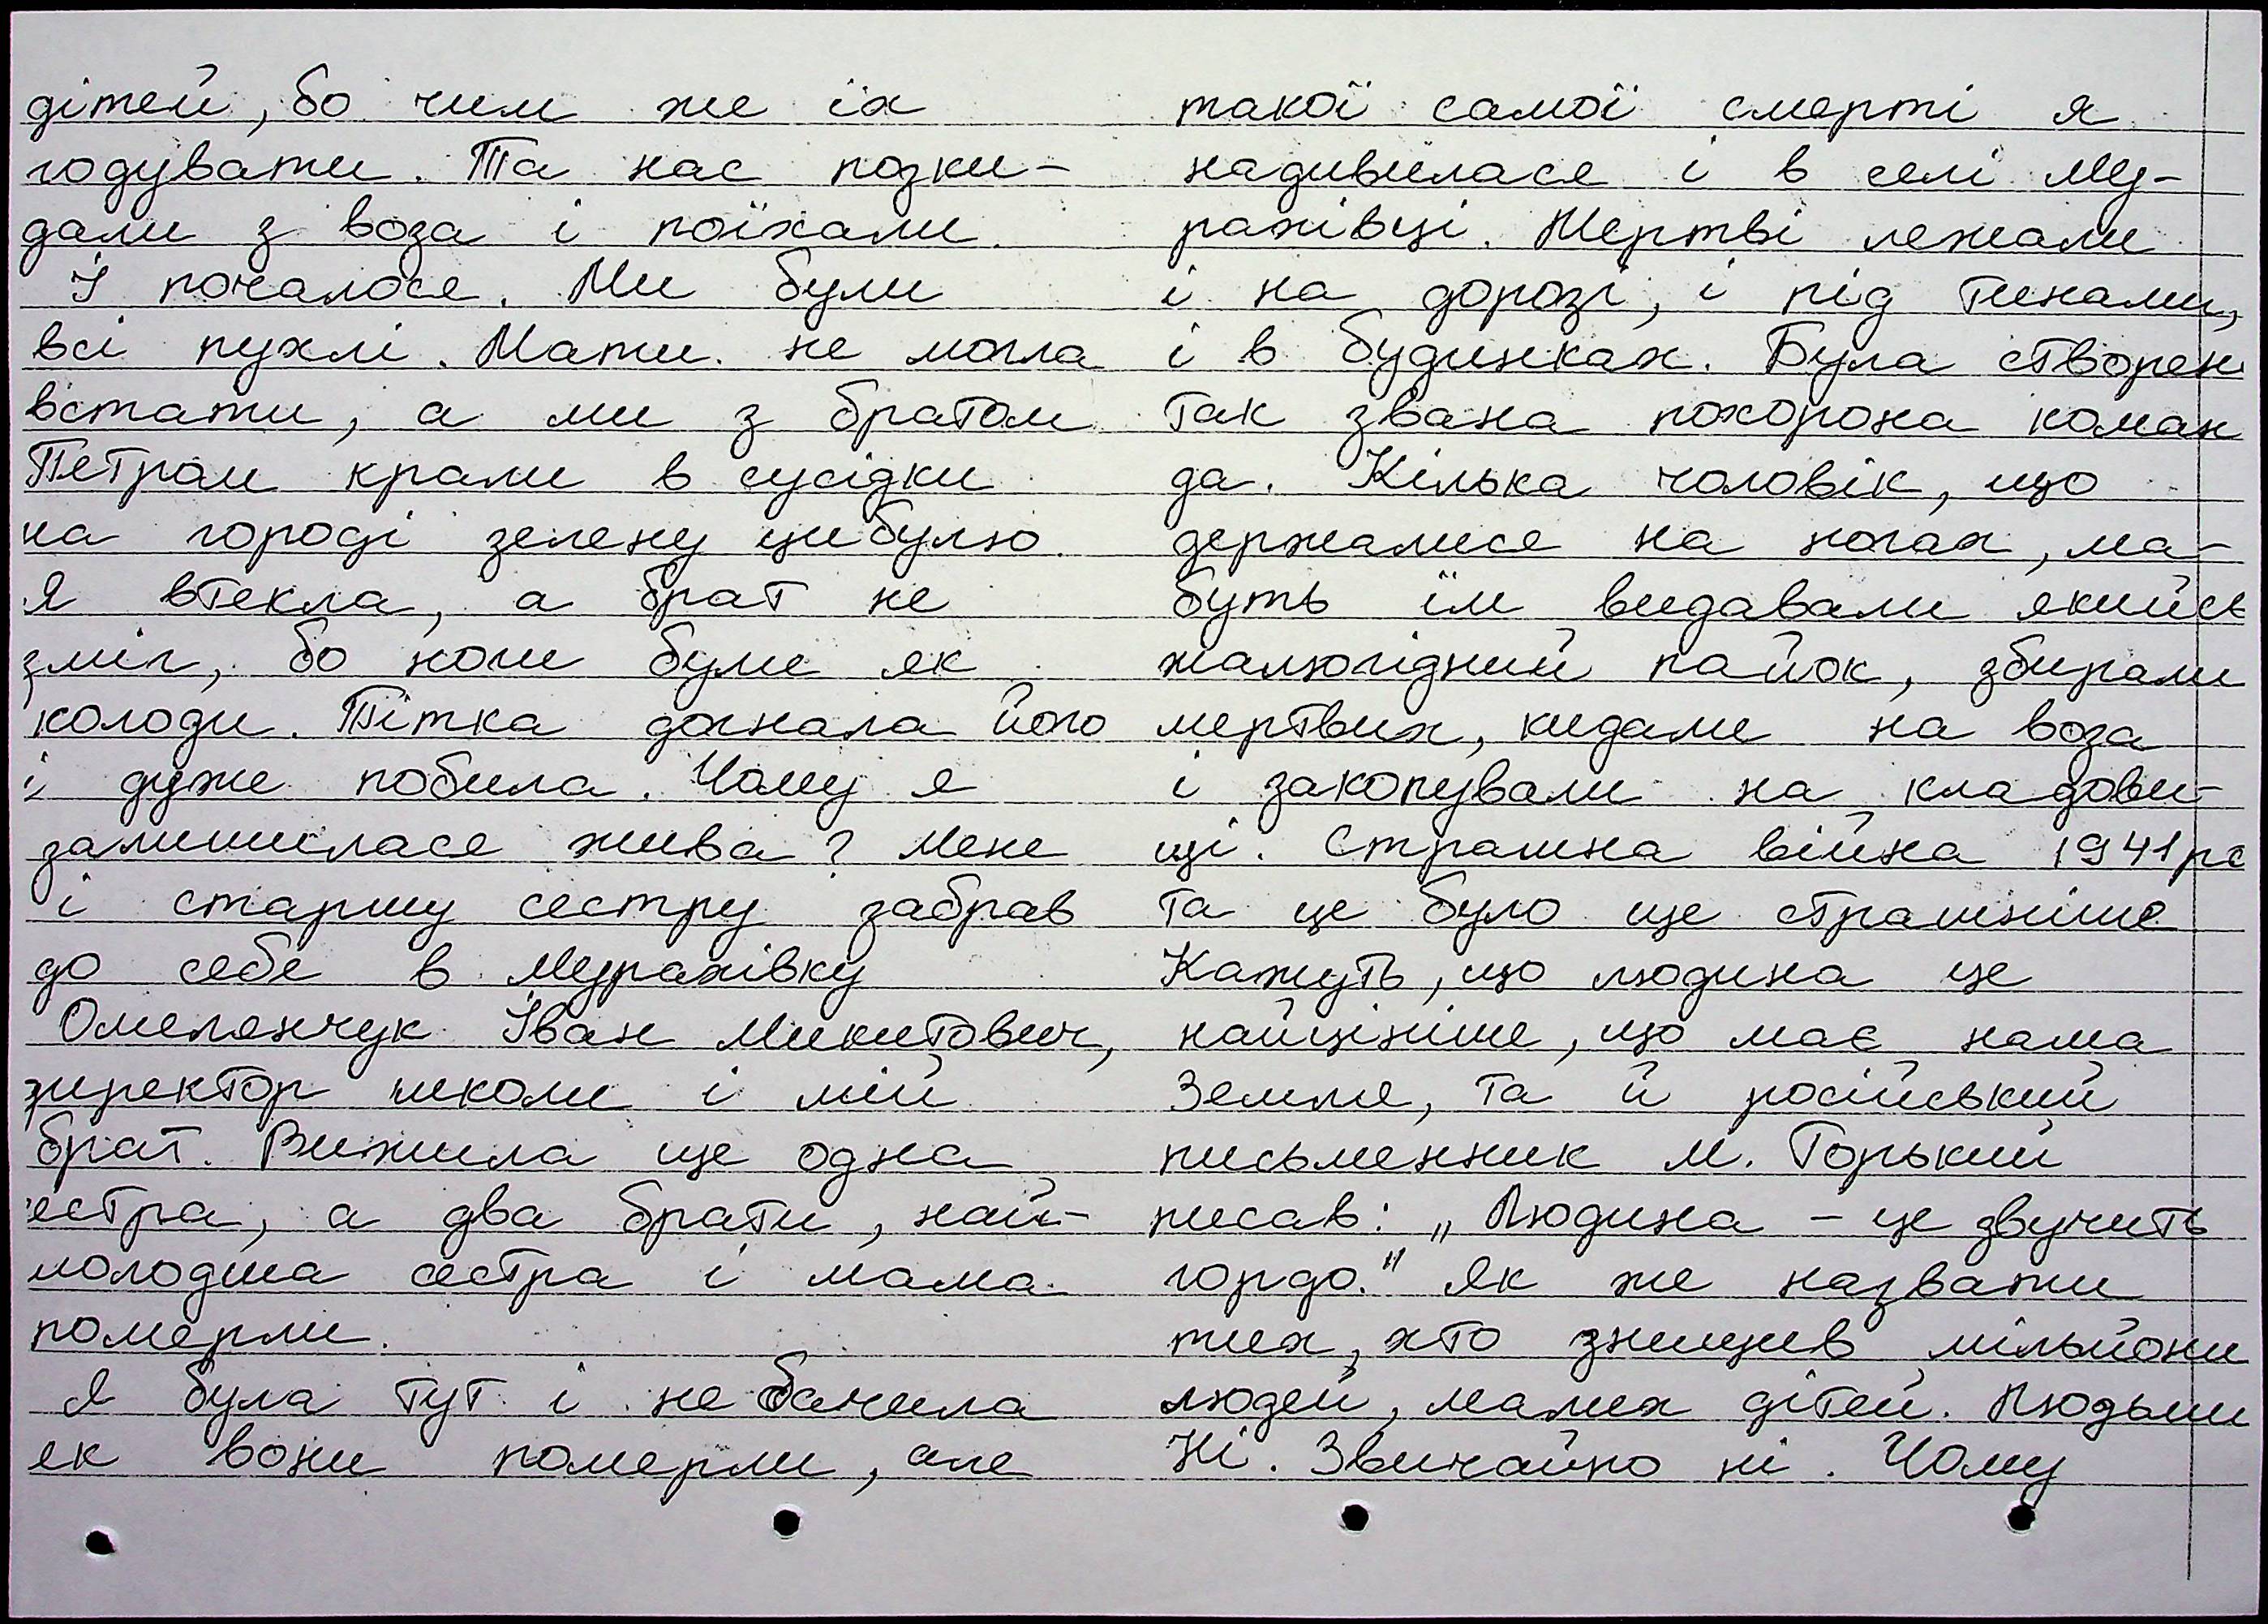 дітей, бо чим же їх
годувати. Та нас позки-
дали з воза і поїхали.
І почалося. Ми були
всі пухлі. Мати не могла
встати, а ми з братом
Петром крали в сусідки
на городі зелену цибулю.
Я втекла, а брат не
зміг, бо ноги були як
колоди. Тітка догнала його
і дуже побила. Чому я
залишилася жива? Мене
і старшу сестру забрав
до себе в Мурахівку
Омелянчук Іван Микитович,
директор школи і мій
брат. Вижила ще одна
сестра, а два брати, най-
молодша сестра і мама
померли.
Я була тут і не бачила
як вони померли, але
такої самої смерті я
надивилася і в селі Му-
рахівці. Мертві лежали
і на дорозі, і під тинами,
і в будинках. Була створен
так звана похорона коман
да. Кілька чоловік, що
держалися на ногах, ма-
буть їм видавали якийсь
жалюгідний пайок, збирали
мертвих, кидали на воза
і закопували на кладови-
щі. Страшна війна 1941рс
та це було ще страшніше
Кажуть, що людина це
найцініше, що має наша
Земля, та й російський
письменник М. Горький
писав: „Людина – це звучить
гордо." Як же назвати
тих, хто знищив мільйони
людей, малих дітей. Людьми
Ні. Звичайно ні. Чому